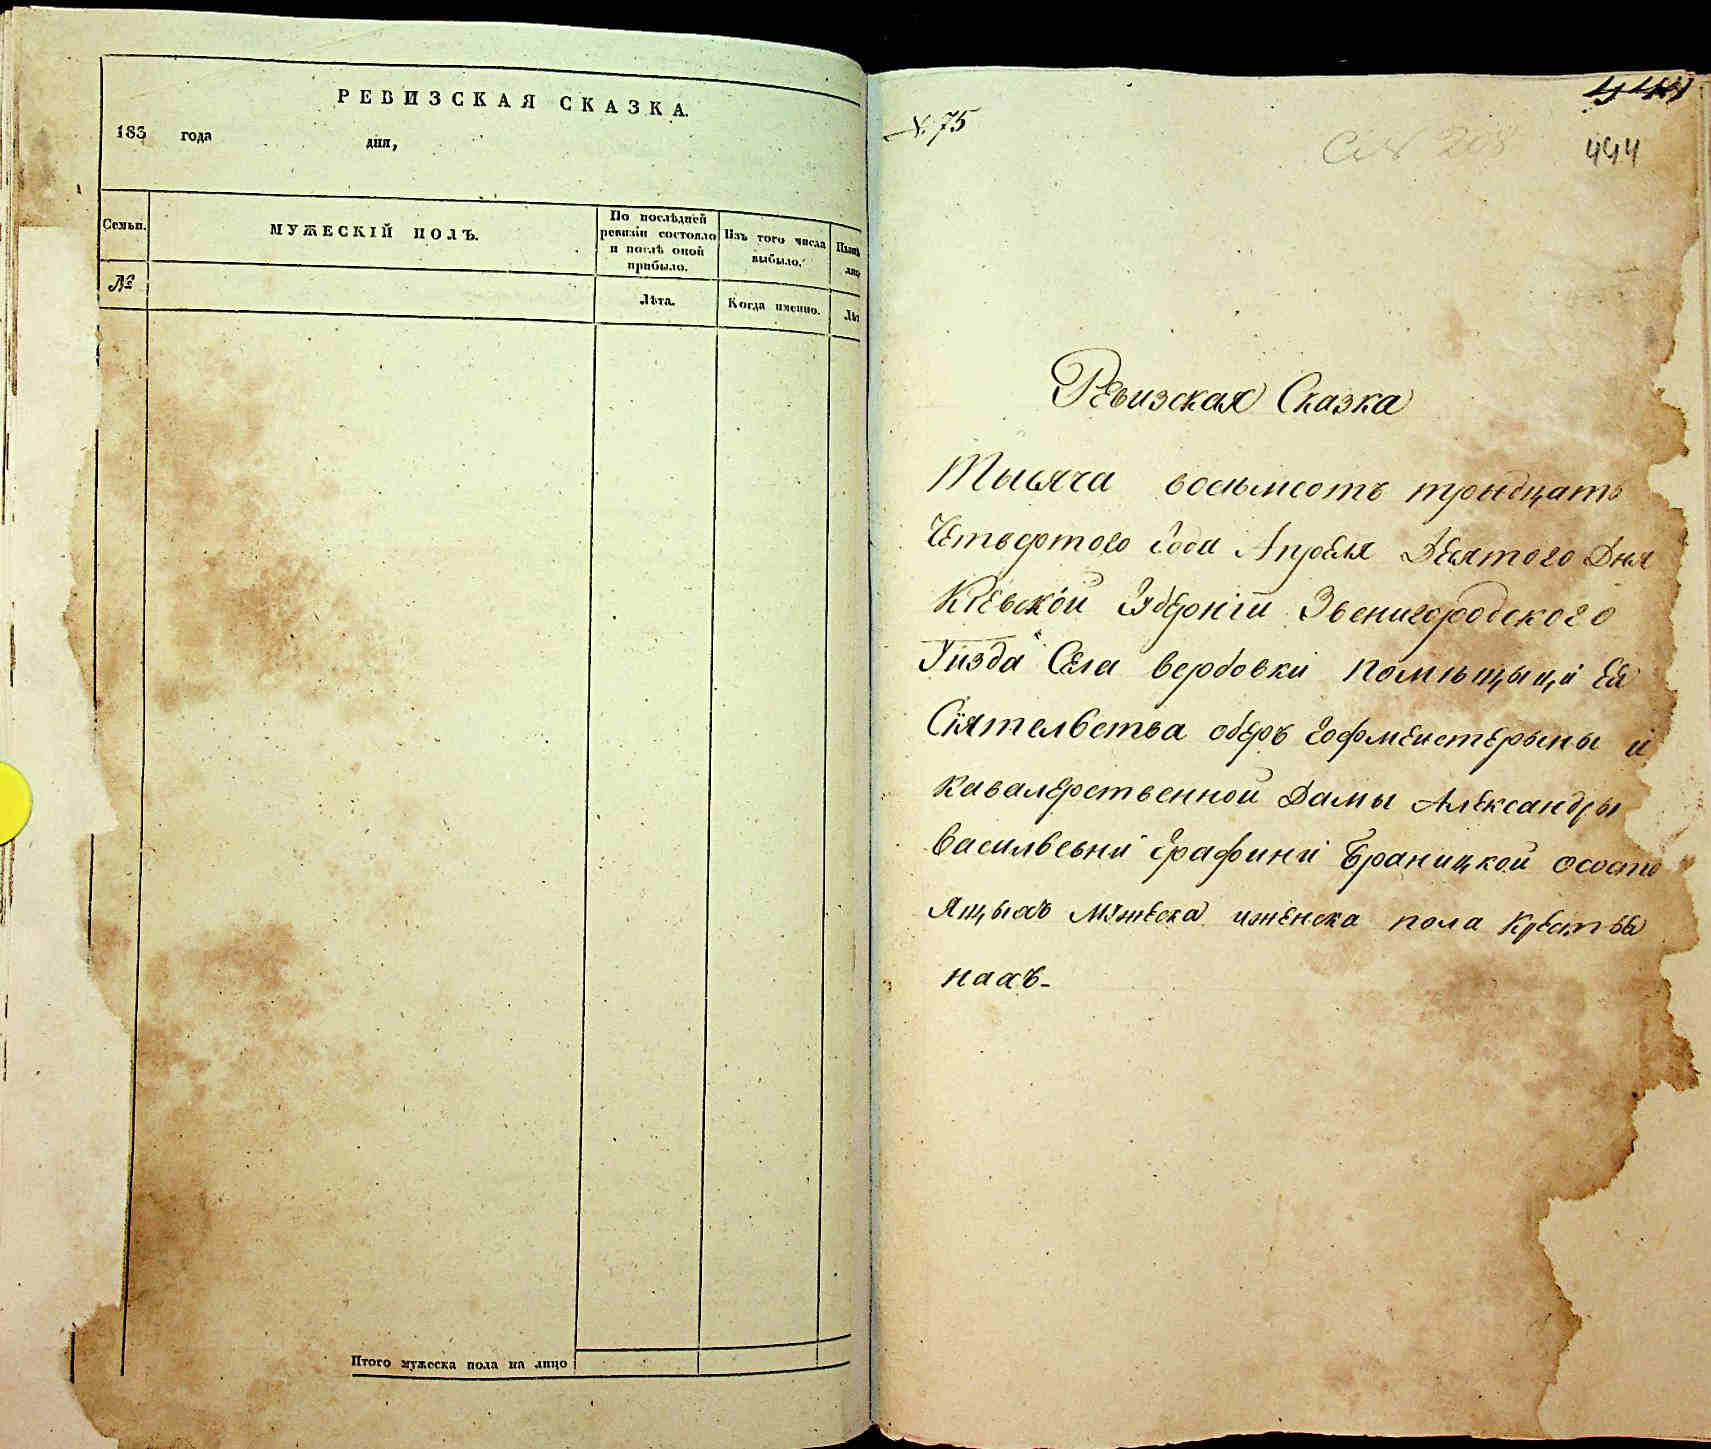 РЕВИЗСКАЯ СКАЗКА.
183 года дня,
Семьи.
МУЖЕСКІЙ ПОЛЪ.
По послѣдней
ревизіи состояло
и послѣ оной
прибыло.
Изъ того числа
выбыло.
№
Лѣта.
Когда именно.
Итого мужеска пола на лицо
№ 75
444
Ревизская Сказка
Тысяча восемсотъ тридцать
Четвертого Года Апреля Девятого Дня
Кіевской Губерніи Звенигородского
Уизда Села Вербовки помѣщыци Ея
Сіятелства оберъ гофмеистерыны и
кавалерственной Дамы Александры
Василвевни Графини Браницкой ососто
ящыхъ мужеска иженска пола Крестья
нахъ-